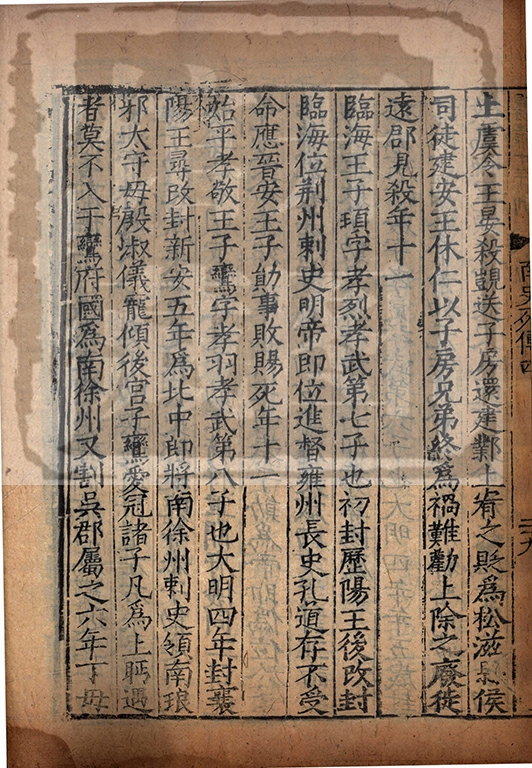 上虞令王晏殺覬送子房還建鄴上宥之貶爲松滋縣侯
司徒建安王休仁以子房兄弟終爲禍難勸上除之廢徙
遠郡見殺年十一
臨海王子頊字孝烈孝武第七子也初封歷陽王後改封
臨海位荆州刺史明帝即位進督雍州長史孔道存不受
命應晉安王子勛事敗賜死年十一
始平孝敬王子鸞字孝羽孝武第八子也大明四年封襄
陽王尋改封新安五年爲北中郎將南徐州刺史領南琅
邪太守母殷淑儀寵傾後宮子鸞愛冠諸子凡爲上眄遇
者莫不入子鸞府國爲南徐州又割吳郡屬之六年丁母